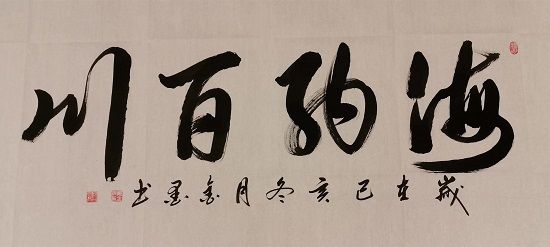 海纳百川
歲在己亥冬月墨书